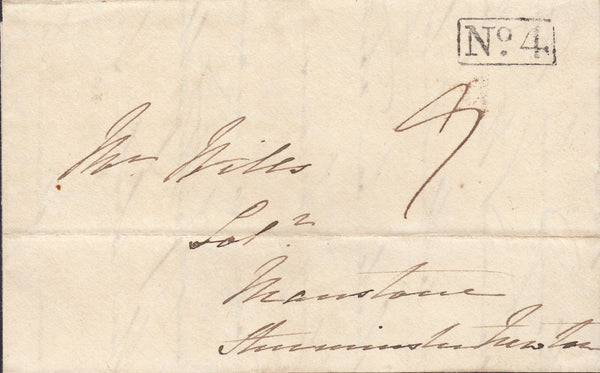 No. 4.
7
Mr Wills
Solr
Manstone
Sturminster Newton